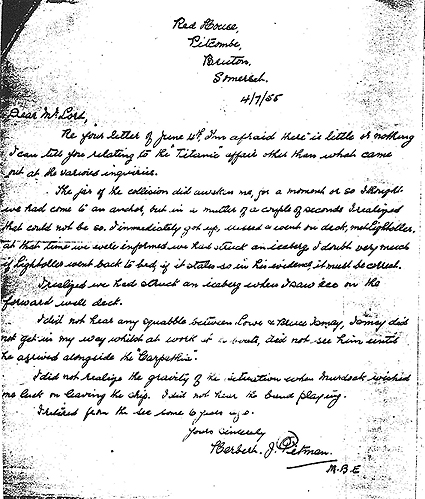 Red House,
Pitcombe,
Bruton,
Somerset.
4/7/55
Dear Mr Lord,
Re your letter of June 4th, I'm afraid there is little or nothing
I can tell you relating to the "Titanic" affair other than what came
out at the various inquiries.
The jar of the collision did awaken me, for a moment or so I thought
we had come to an anchor, but in a matter of a couple of seconds I realized
that could not be so. I immediately got up, dressed & went on deck, met Lightoller.
at that time we were informed we has struck an iceberg I doubt very much
if Lightoller went back to bed, if it states so in his evidence, it must be correct.
I realized we had struck an iceberg when I saw ice on the
forward well deck.
I did not hear any squabble between Lowe & Bruce Ismay, Ismay did
not get in my way whilst at work at boats, did not see him until
he arrived alongside the "Carpathia".
I did not realize the gravity of the situation when Murdock wished
me luck on leaving the ship. I did not hear the band playing.
I retired from the sea some 6 years ago.
Yours sincerely
Herbert. J. Pitman.
M.B.E